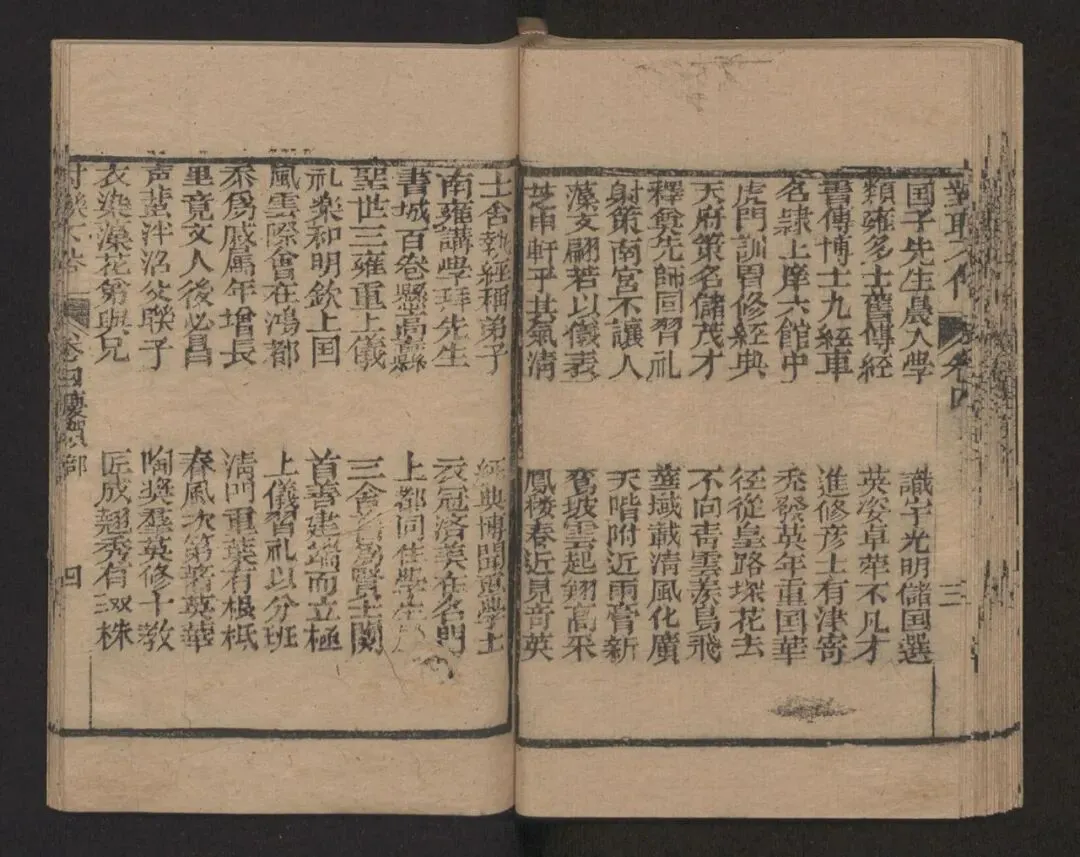 卷四 三
国子先生晨入學 識字光明儲国選
類雍多士舊傳經 英姿卓犖不凡才
書傳博士九經車 進修彦士有津寄
名隸上庠六館中 秀發英年重国華
虎門訓冑修經典 徑從皇路探花去
天府策名儲茂才 不向青雲羨鳥飛
釋奠先師囬習礼 域載清風化廣
射策南宮不讓人 天階附近雨膏新
藻文翩若以儀表 坡雲起翔高采
芝串軒乎其氣清 鳳棲春近見奇英
士舍執經稱弟子 經典博聞 學士
南雍講學拜先生 衣冠済美在名門
書城百卷懸高 上都同住學生
聖世三雍重上儀 三舍 為賢士関
礼樂和明欽上国 首善建端而立極
風雲際會在鴻都 上儀習礼以分班
忝為戚属年增長 清門重葉有根柢
里竟文人後必昌 春風次第著英華
声蜚泮沼父聯子 陶奬羣英修十教
衣染藻花弟與兄 匠成翹秀有双株
卷四慶賀部 四